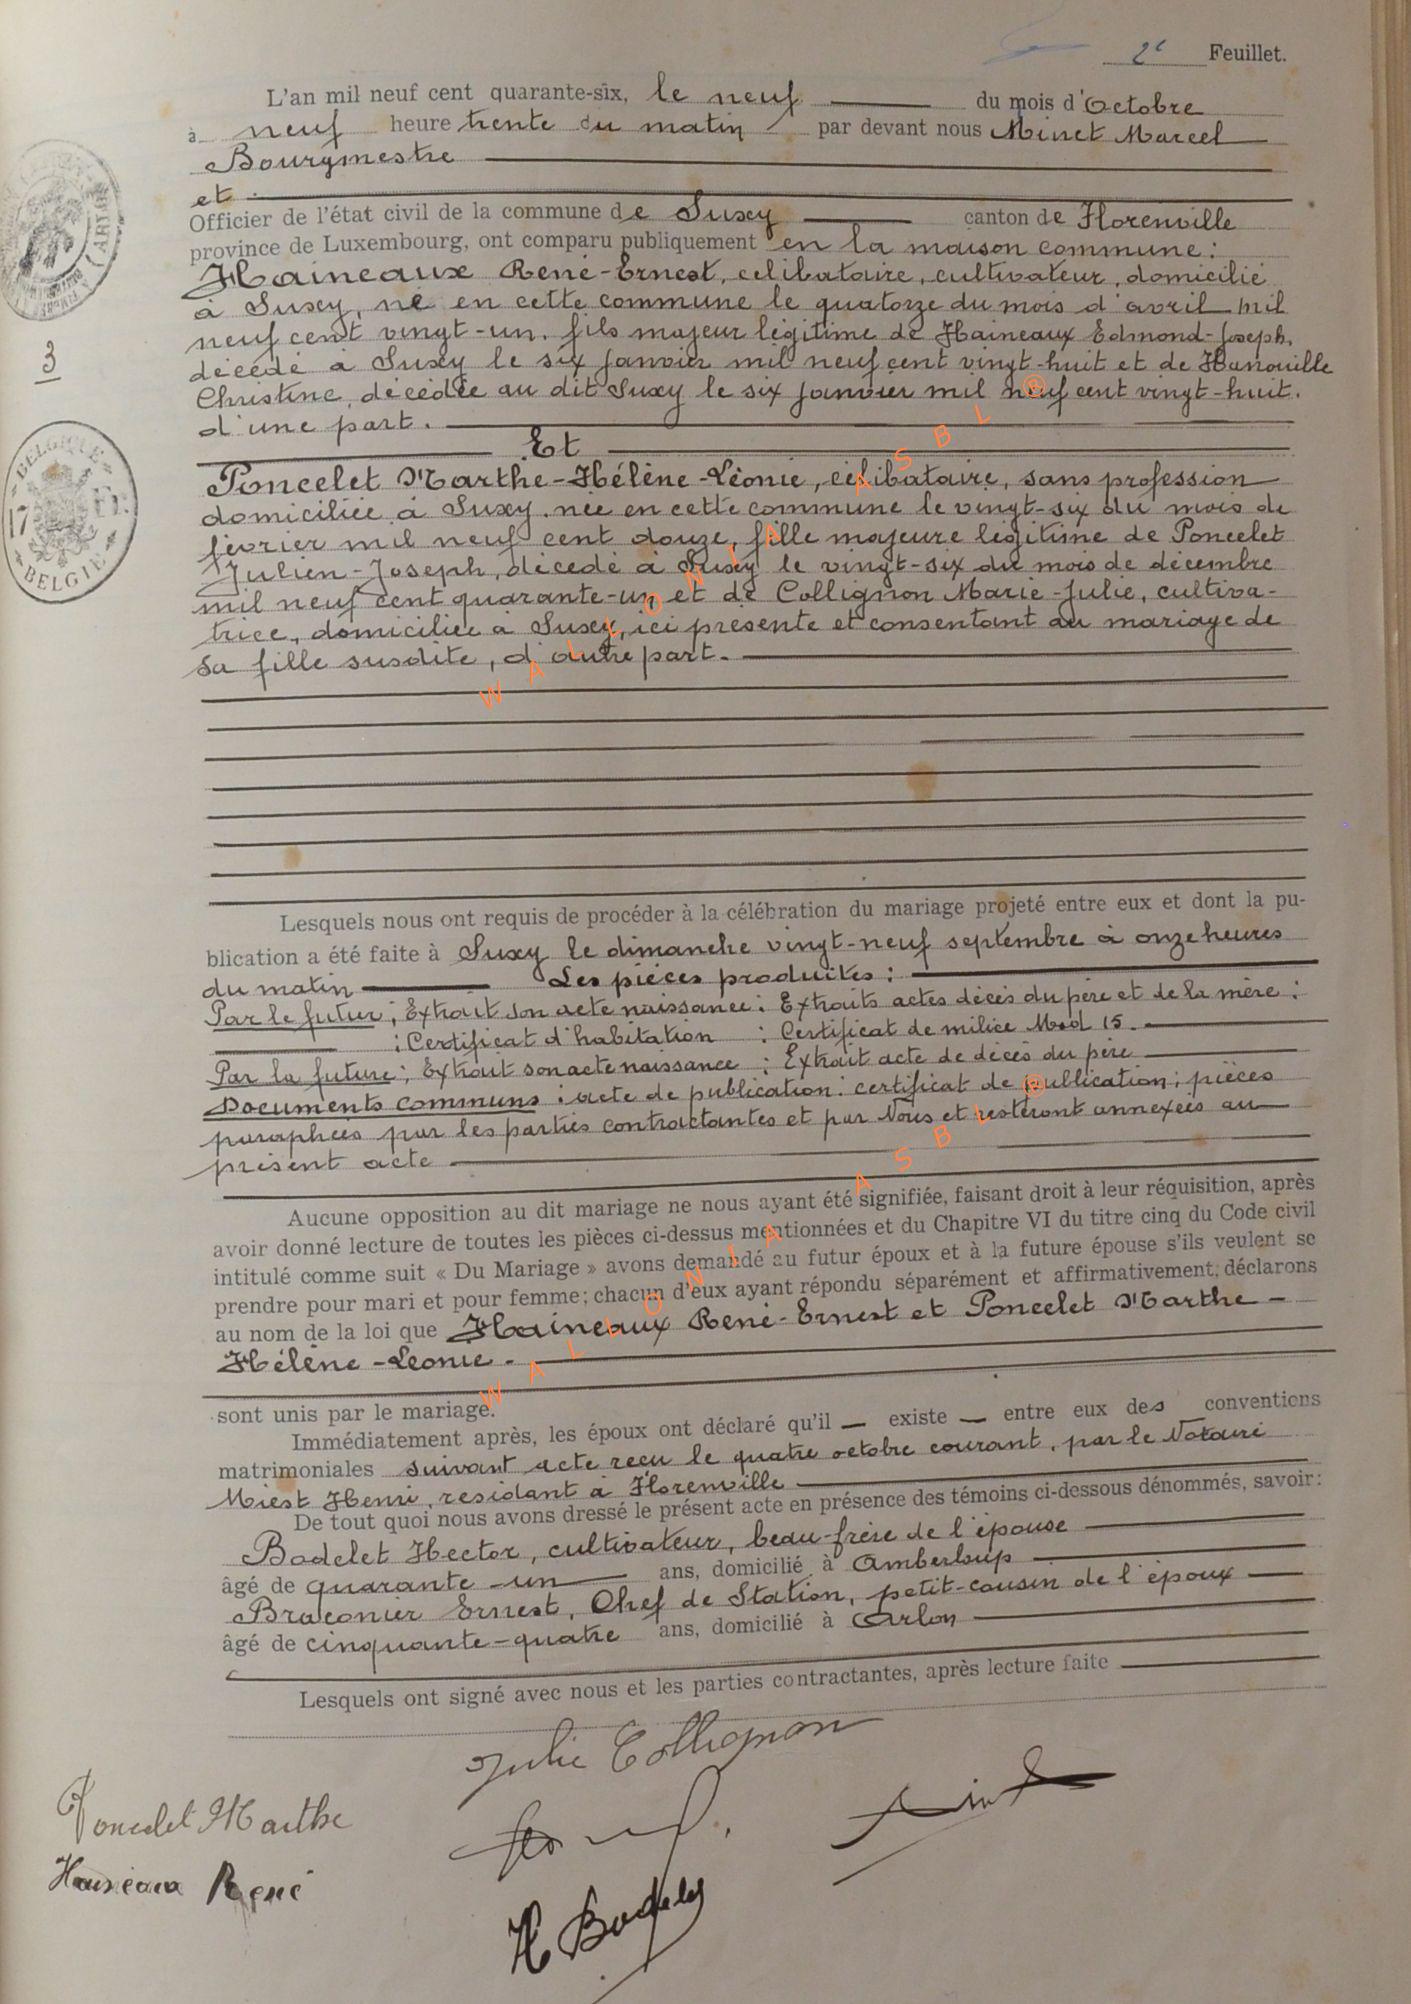 2e Feuillet.
L'an mil neuf cent quarante-six, le neuf du mois d'Octobre
à neuf heure trente du matin par devant nous Minet Marcel
Bourgmestre
et
Officier de l'état civil de la commune de Suxy canton de Florenville
province de Luxembourg, ont comparu publiquement en la maison commune :
Haineaux René-Ernest, célibataire, cultivateur, domicilié
à Suxy, né en cette commune le quatorze du mois d'avril mil
neuf cent vingt-un, fils majeur légitime de Haineaux Edmond-Joseph,
décédé à Suxy le six janvier mil neuf cent vingt-huit et de Hanouille
Christine, décédée au dit Suxy le six janvier mil neuf cent vingt-huit.
d'une part.
Et
Poncelet Marthe-Hélène-Léonie, célibataire, sans profession
domiciliée à Suxy, née en cette commune le vingt-six du mois de
février mil neuf cent douze, fille majeure légitime de Poncelet
Julien-Joseph, décédé à Suxy le vingt-six du mois de décembre
mil neuf cent quarante-un et de Collignon Marie-Julie, cultiva-
trice, domiciliée à Suxy, ici présente et consentant au mariage de
sa fille susdite, d'autre part.
Lesquels nous ont requis de procéder à la célébration du mariage projeté entre eux et dont la pu-
blication a été faite à Suxy le dimanche vingt-neuf septembre à onze heures
du matin Les pièces produites :
Par le futur ; Extrait son acte naissance : Extraits actes décès du père et de la mère :
: Certificat d'habitation : Certificat de milice Mod 15.
Par la future ; Extrait son acte naissance : Extrait acte de décès du père
Documents communs : acte de publication : certificat de publication ; pièces
paraphées par les parties contractantes et par Nous et resteront annexées au
présent acte
Aucune opposition au dit mariage ne nous ayant été signifiée, faisant droit à leur réquisition, après
avoir donné lecture de toutes les pièces ci-dessus mentionnées et du Chapitre VI du titre cinq du Code civil
intitulé comme suit « Du Mariage » avons demandé au futur époux et à la future épouse s'ils veulent se
prendre pour mari et pour femme; chacun d'eux ayant répondu séparément et affirmativement; déclarons
au nom de la loi que Haineaux René-Ernest et Poncelet Marthe-
Hélène-Léonie.
sont unis par le mariage.
Immédiatement après, les époux ont déclaré qu'il — existe — entre eux des conventions
matrimoniales suivant acte reçu le quatre octobre courant, par le Notaire
Miest Henri, résidant à Florenville
De tout quoi nous avons dressé le présent acte en présence des témoins ci-dessous dénommés, savoir :
Bodelet Hector, cultivateur, beau-frère de l'épouse
âgé de quarante-un ans, domicilié à Amberloup
Braconier Ernest, Chef de Station, petit-cousin de l'époux
âgé de cinquante-quatre ans, domicilié à Arlon
Lesquels ont signé avec nous et les parties contractantes, après lecture faite
Julie Collignon
Poncelet Marthe
Haineaux René
H Bodelet
3
BELGIQUE
17 Fr.
BELGIE
WALLONIA ASBL ®
WALLONIA ASBL ®